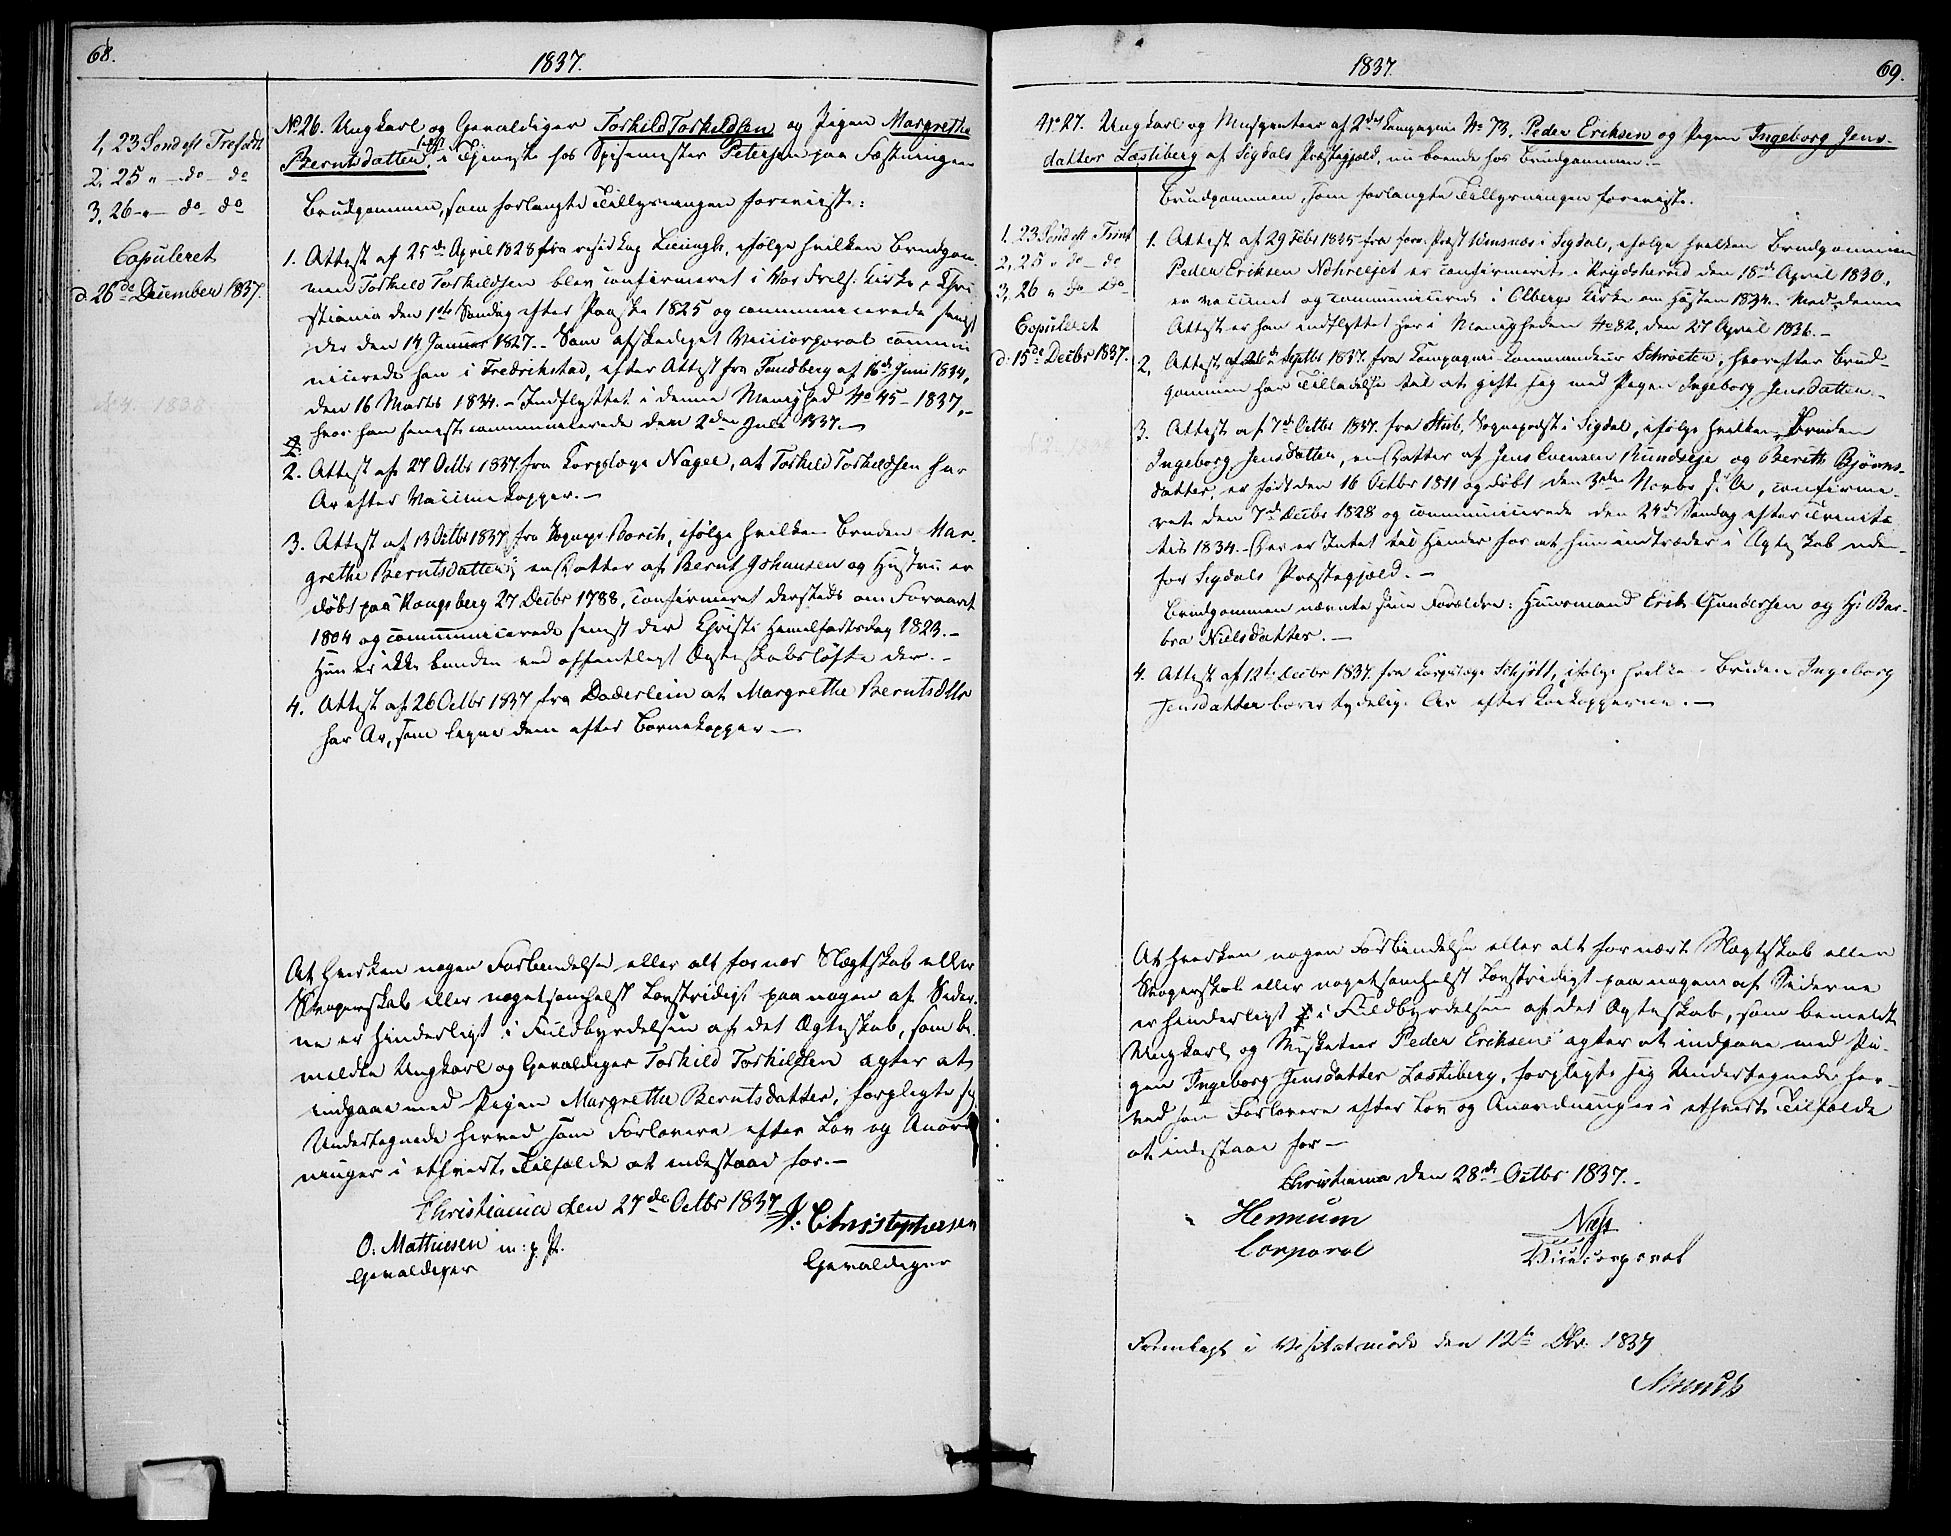 68.
1837.
1, 23 Sønd eft Trefoldt
2, 25 " — do — do
3, 26 — " — do — do
Copuleret
d. 26de December 1837.
No 26. Ungkarl og Gevaldiger Torkild Torkildsen og Pigen Margrethe
Berntsdatter, i Tjeneste hos Spisemester Petersen paa Fæstningen
Brudgommen, som forlangte Tillysningen foreviiste:
1. Attest af 25de April 1828 fra resid Kap ifølge hvilken Brudgom-
men Torkild Torkildsen blev confirmeret i Vor Frels. Kirke i Chri-
stiania den 1ste Søndag efter Paaske 1825 og communicerede senest
der den 14 Januar 1827. - Som afskediget Vicecorporal commu-
nicerede han i Fredrikstad, efter Attest fra Tandberg af 16de Juni 1834,
den 16 Marts 1834. - Indflyttet i denne Menighed No 45 - 1837, -
hvor han senest communicerede den 2den Juli 1837. —
2. Attest af 27 Octbr 1837 fra Korpslæge Nagel, at Torkild Torkildsen har
Ar efter Vaccinekopper. —
3. Attest af 13 Octbr 1837 fra Sognepr Borch, ifølge hvilken Bruden Mar-
grethe Berntsdatter, en Datter af Bernt Johansen og Hustru er
døbt paa Kongsberg 27 Decbr 1788, confirmeret dersteds om Foraaret
1804 og communicerede senest der Christi Himmelfartsdag 1823. -
Hun er ikke bunden ved offentligt Ægteskabsløfte der. -
4. Attest af 26 Octbr 1837 fra Døderlein at Margrethe Berntsdttr
har Ar, som ligne dem efter Børnekopper —
At hverken nogen Forbindelse eller alt for nær Slægtskab eller
Svogerskab eller nogetsomhelst Lovstridigt paa nogen af Sider-
ne er hinderligt i Fuldbyrdelsen af det Ægteskab, som be-
meldte Ungkarl og Gevaldiger Torkild Torkildsen agter at
indgaae med Pigen Margrethe Berntsdatter, forpligte sig
Undertegnede herved som Forlovere efter Lov og Anord-
ninger i ethvert Tilfælde at indestaae for. —
Christiania den 27de Octbr 1837
O. Mathiesen m: p. P.
Gevaldiger
Christophersen
Gevaldiger
1837.
69.
1, 23 Sønd eft Trinit
2, 25 " do — do
3, 26 " do — do
Copuleret
d. 15de Decbr 1837.
No 27. Ungkarl og Musqueteer af 2det Compagnie No 73. Peder Eriksen og Pigen Ingeborg Jens-
datter Lastiberg af Sigdals Præstegjæld, nu boende hos Brudgommen. -
Brudgommen, som forlangte Tillysningen foreviste.
1. Attest af 29 Febr 1835 fra Præst i Sigdal, ifølge hvilken Brudgommen
Peder Eriksen er confirmeret i Krydsherred den 18de April 1830,
er vaccinert og communicerede i Olbergs Kirke om Høsten 1834. Med denne
Attest er han indflyttet her i Menigheden No 82, den 27 April 1836. -
2, Attest af 26de Septbr 1837 fra Compagnie Commandeur Schrøeter, hvorefter Brud-
gommen har Tilladelse til at gifte sig med Pigen Ingeborg Jensdatter. -
3. Attest af 7de Octbr 1837 fra Stub, Sognepræst i Sigdal, ifølge hvilken Bruden
Ingeborg Jensdatter, en Datter af Jens Evensen Rundseje og Bereth Bjørns-
datter, er født den 16 Octbr 1811 og døbt den 3die Novbr s. A, confirme-
ret den 7de Decbr 1828 og communicerede den 24de Søndag efter Trinita-
tis 1834. - Der er Intet til Hinder for at hun indtræder i Ægteskab uden-
for Sigdals Præstegjæld. -
Brudgommen nævnte sine Forældre: Huusmand Erik Gundersen og H: Bar-
bra Nielsdatter. —
4. Attest af 12te Decbr 1837 fra Corpslæge Schjøtt, ifølge hvilke - Bruden Ingeborg
Jensdatter bærer tydelig Ar efter Kokopperne. —
At hverken nogen Forbindelse eller alt for nært Slægtskab eller
Svogerskab eller nogetsomhelst Lovstridigt paa nogen af Siderne
er hinderligt i Fuldbyrdelsen af det Ægteskab, som bemeldte
Ungkarl og Musketeer Peder Eriksen agter at indgaae med Pi-
gen Ingeborg Jensdatter Lastiberg, forpligte sig Undertegnede her-
ved som Forlovere efter Lov og Anordninger i ethvert Tilfælde
at indestaae for —
Christiania den 28de Octbr 1837. -
Hennum
Corporal
Næss
Vicecorporal
Fremlagt i Visitatsmøde den 12te Dbr. 1837